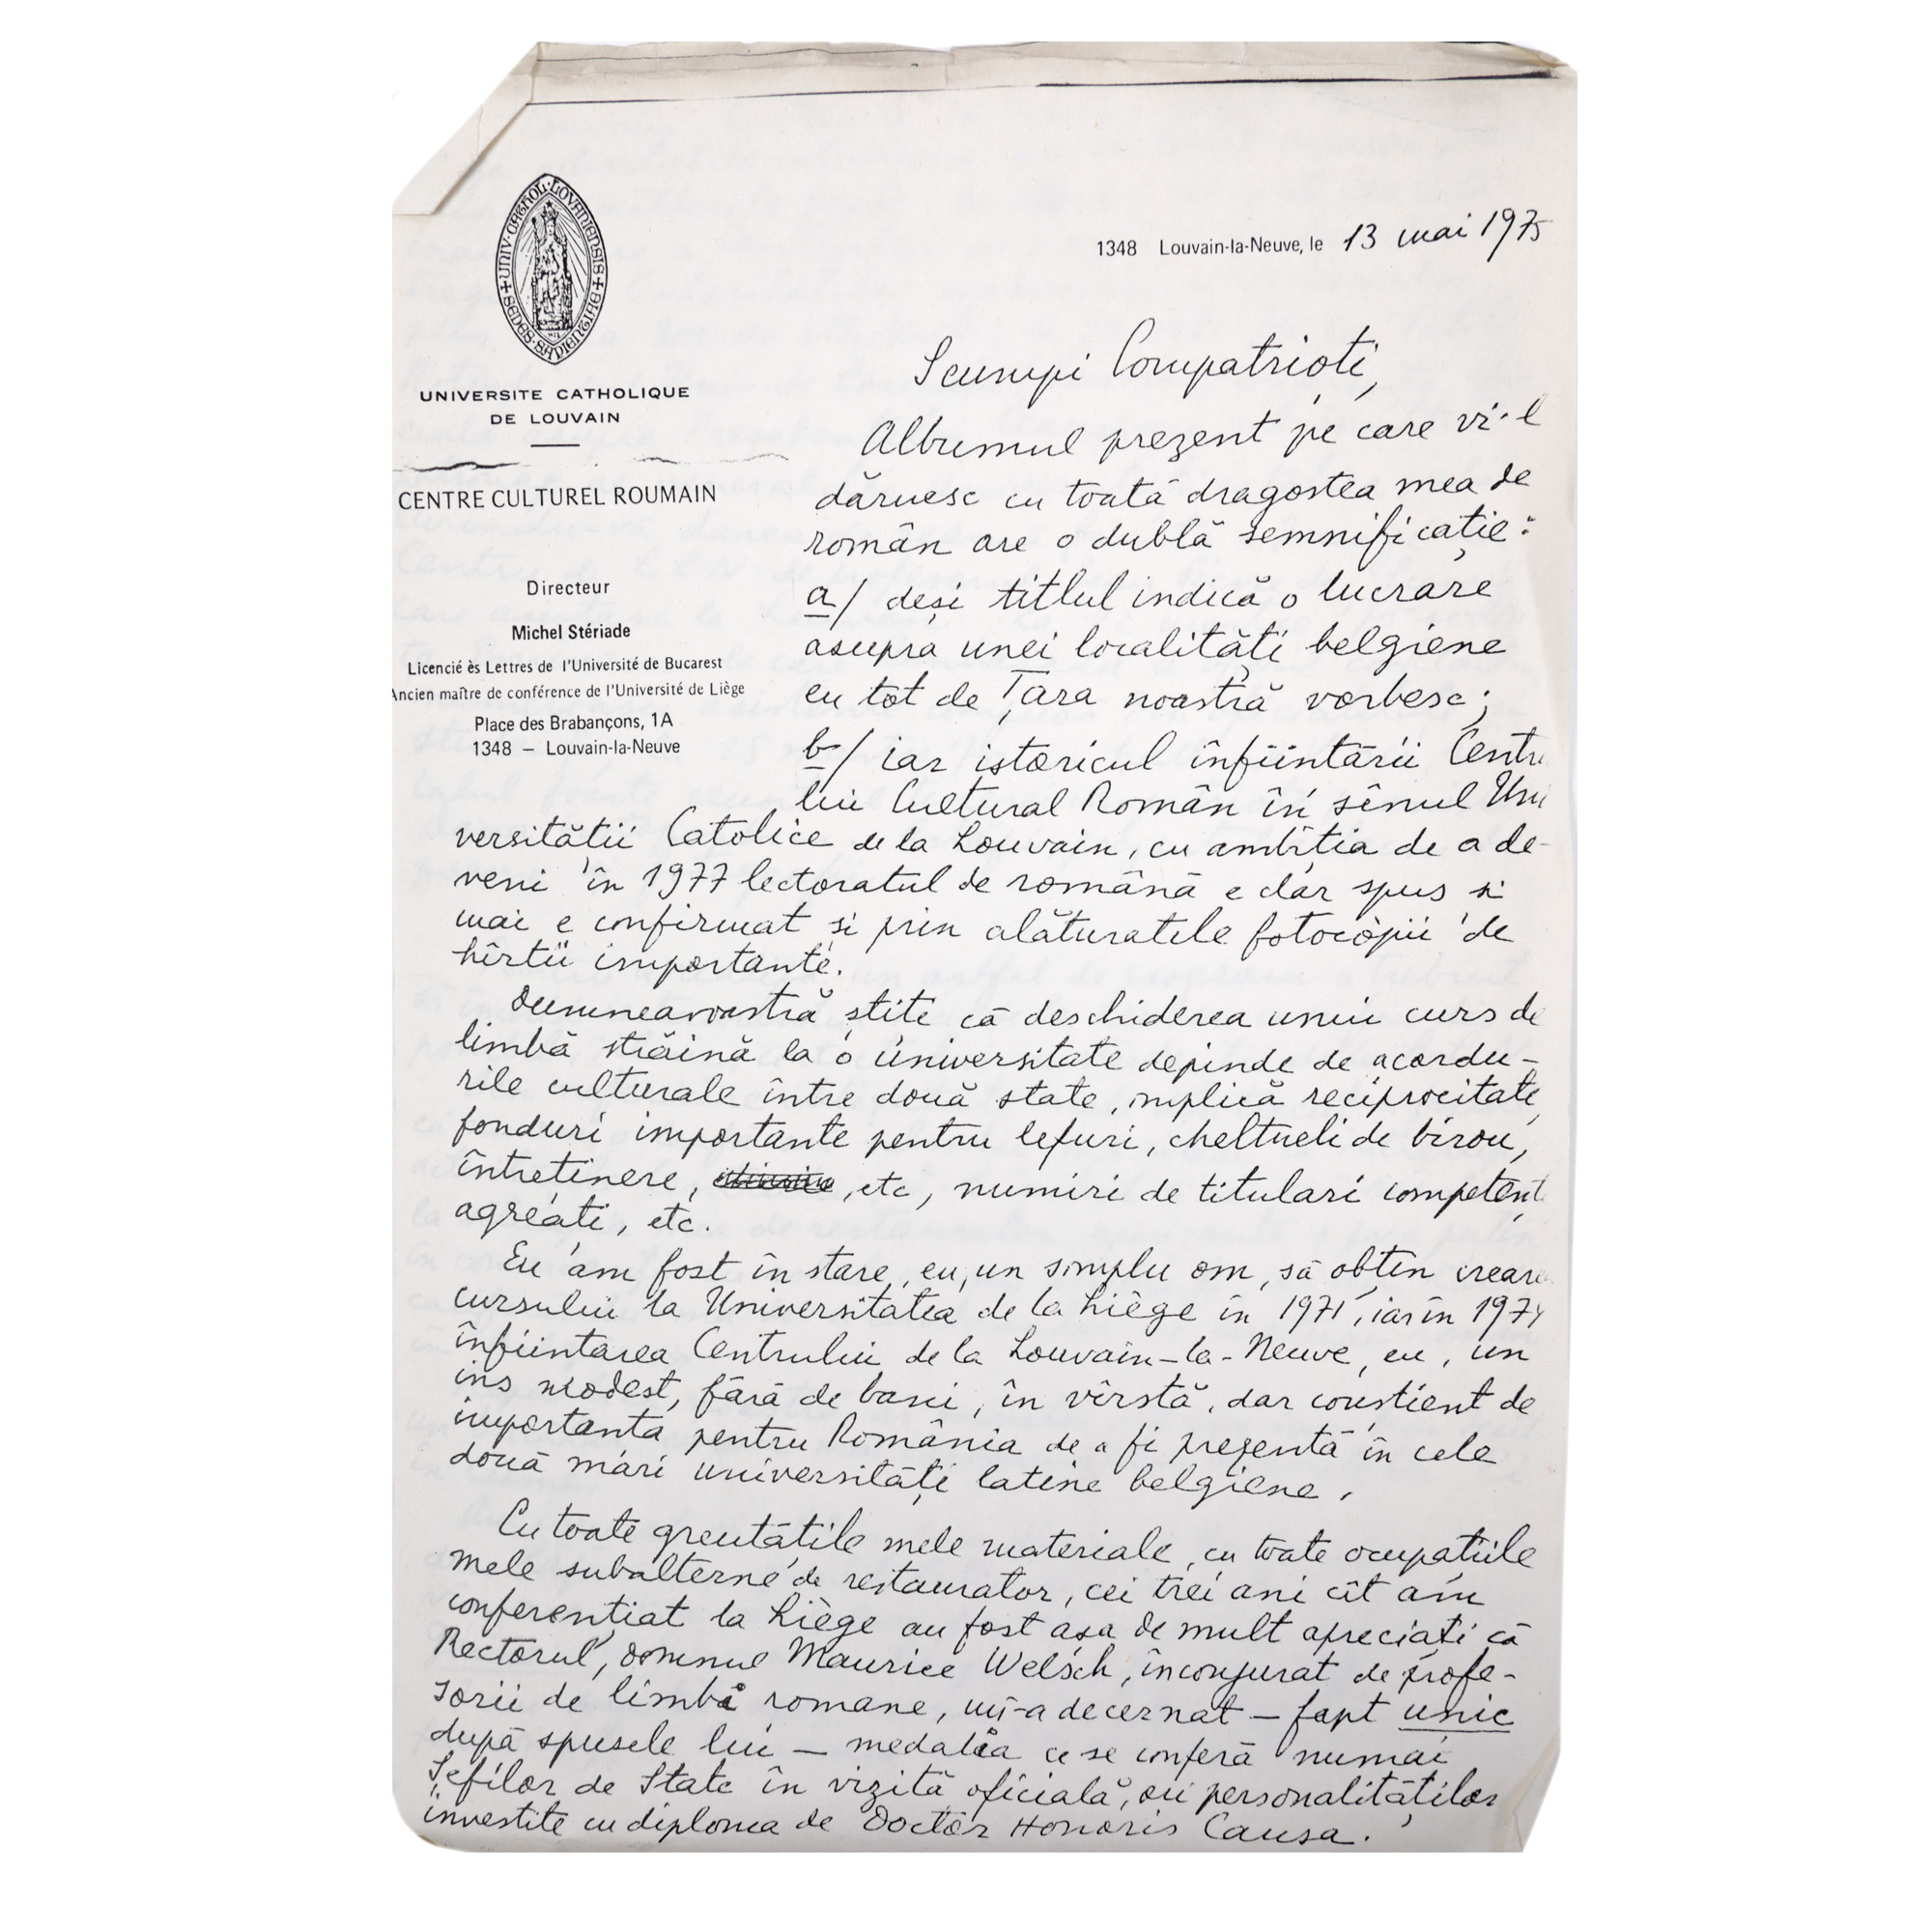 UNIV·CATHOL·LOVANIENSIS
SEDES·SAPIENTIAE
UNIVERSITE CATHOLIQUE
DE LOUVAIN
CENTRE CULTUREL ROUMAIN
Directeur
Michel Stériade
Licencié ès Lettres de l'Université de Bucarest
Ancien maître de conférence de l'Université de Liège
Place des Brabançons, 1A
1348 – Louvain-la-Neuve
1348 Louvain-la-Neuve, le 13 mai 1975
Scumpi Compatrioți,
Albumul prezent pe care vi-l
dăruesc cu toată dragostea mea de
român are o dublă semnificație:
a/ deși titlul indică o lucrare
asupra unei localități belgiene
eu tot de Țara noastră vorbesc;
b/ iar istoricul înființării Centru
lui Cultural Român în sînul Uni
versității Catolice de la Louvain, cu ambiția de a de-
veni în 1977 lectoratul de română e clar spus și
mai e confirmat și prin alăturatele fotocopii de
hîrtii importante.
Dumneavoastră știți că deschiderea unui curs de
limbă străină la o universitate depinde de acordu-
rile culturale între două state, implică reciprocitate,
fonduri importante pentru lefuri, cheltueli de birou,
întreținere, , etc, numiri de titulari competenți
agreați, etc.
Eu am fost în stare, eu, un simplu om, să obțin crearea
cursului la Universitatea de la Liège în 1971, iar în 1974
înființarea Centrului de la Louvain-la-Neuve, eu, un
ins modest, fără de bani, în vîrstă, dar conștient de
importanța pentru România de a fi prezentă în cele
două mari universități latine belgiene.
Cu toate greutățile mele materiale, cu toate ocupațiile
mele subalterne de restaurator, cei trei ani cît am
conferențiat la Liège au fost așa de mult apreciați că
Rectorul, domnul Maurice Welsch, înconjurat de profe-
sorii de limbi romane, mi-a decernat — fapt unic
după spusele lui — medalia ce se conferă numai
Șefilor de State în vizită oficială, ori personalităților
investite cu diploma de Doctor Honoris Causa.